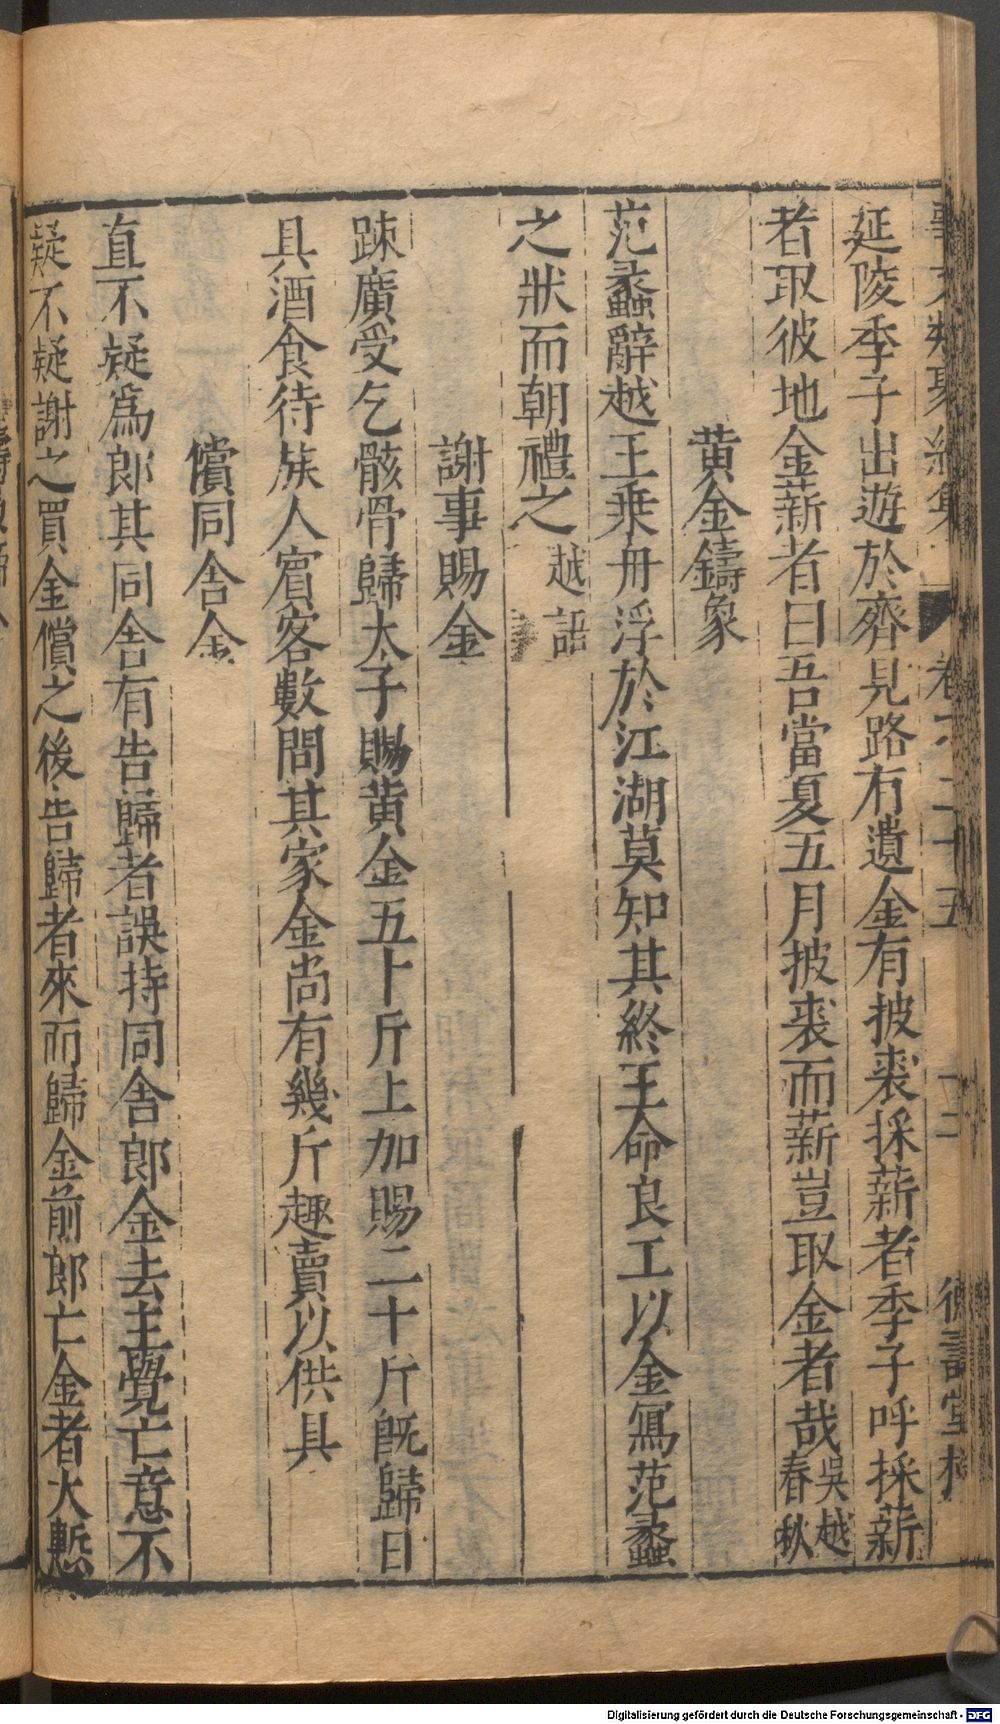 延陵季子出遊於齊見路有遺金有披裘採薪者季子呼採薪
者取彼地金薪者曰吾當夏五月披裘而薪豈取金者哉吳越春秋
黄金鑄象
范蠡辭越王乗舟浮於江湖莫知其終王命良工以金寫范蠡
之狀而朝禮之越語
謝事賜金
踈廣受乞骸骨歸太子賜黄金五十斤上加賜二十斤旣歸日
具酒食待族人賔客數問其家金尚有幾斤趣賣以供具
償同舎金
直不疑爲郎其同舎有告歸者誤持同舎郎金去主覺亡意不
疑不疑謝之買金償之後告歸者來而歸金前郎亡金者大慙
Digitalisierung gefördert durch die Deutsche Forschungsgemeinschaft - DFG